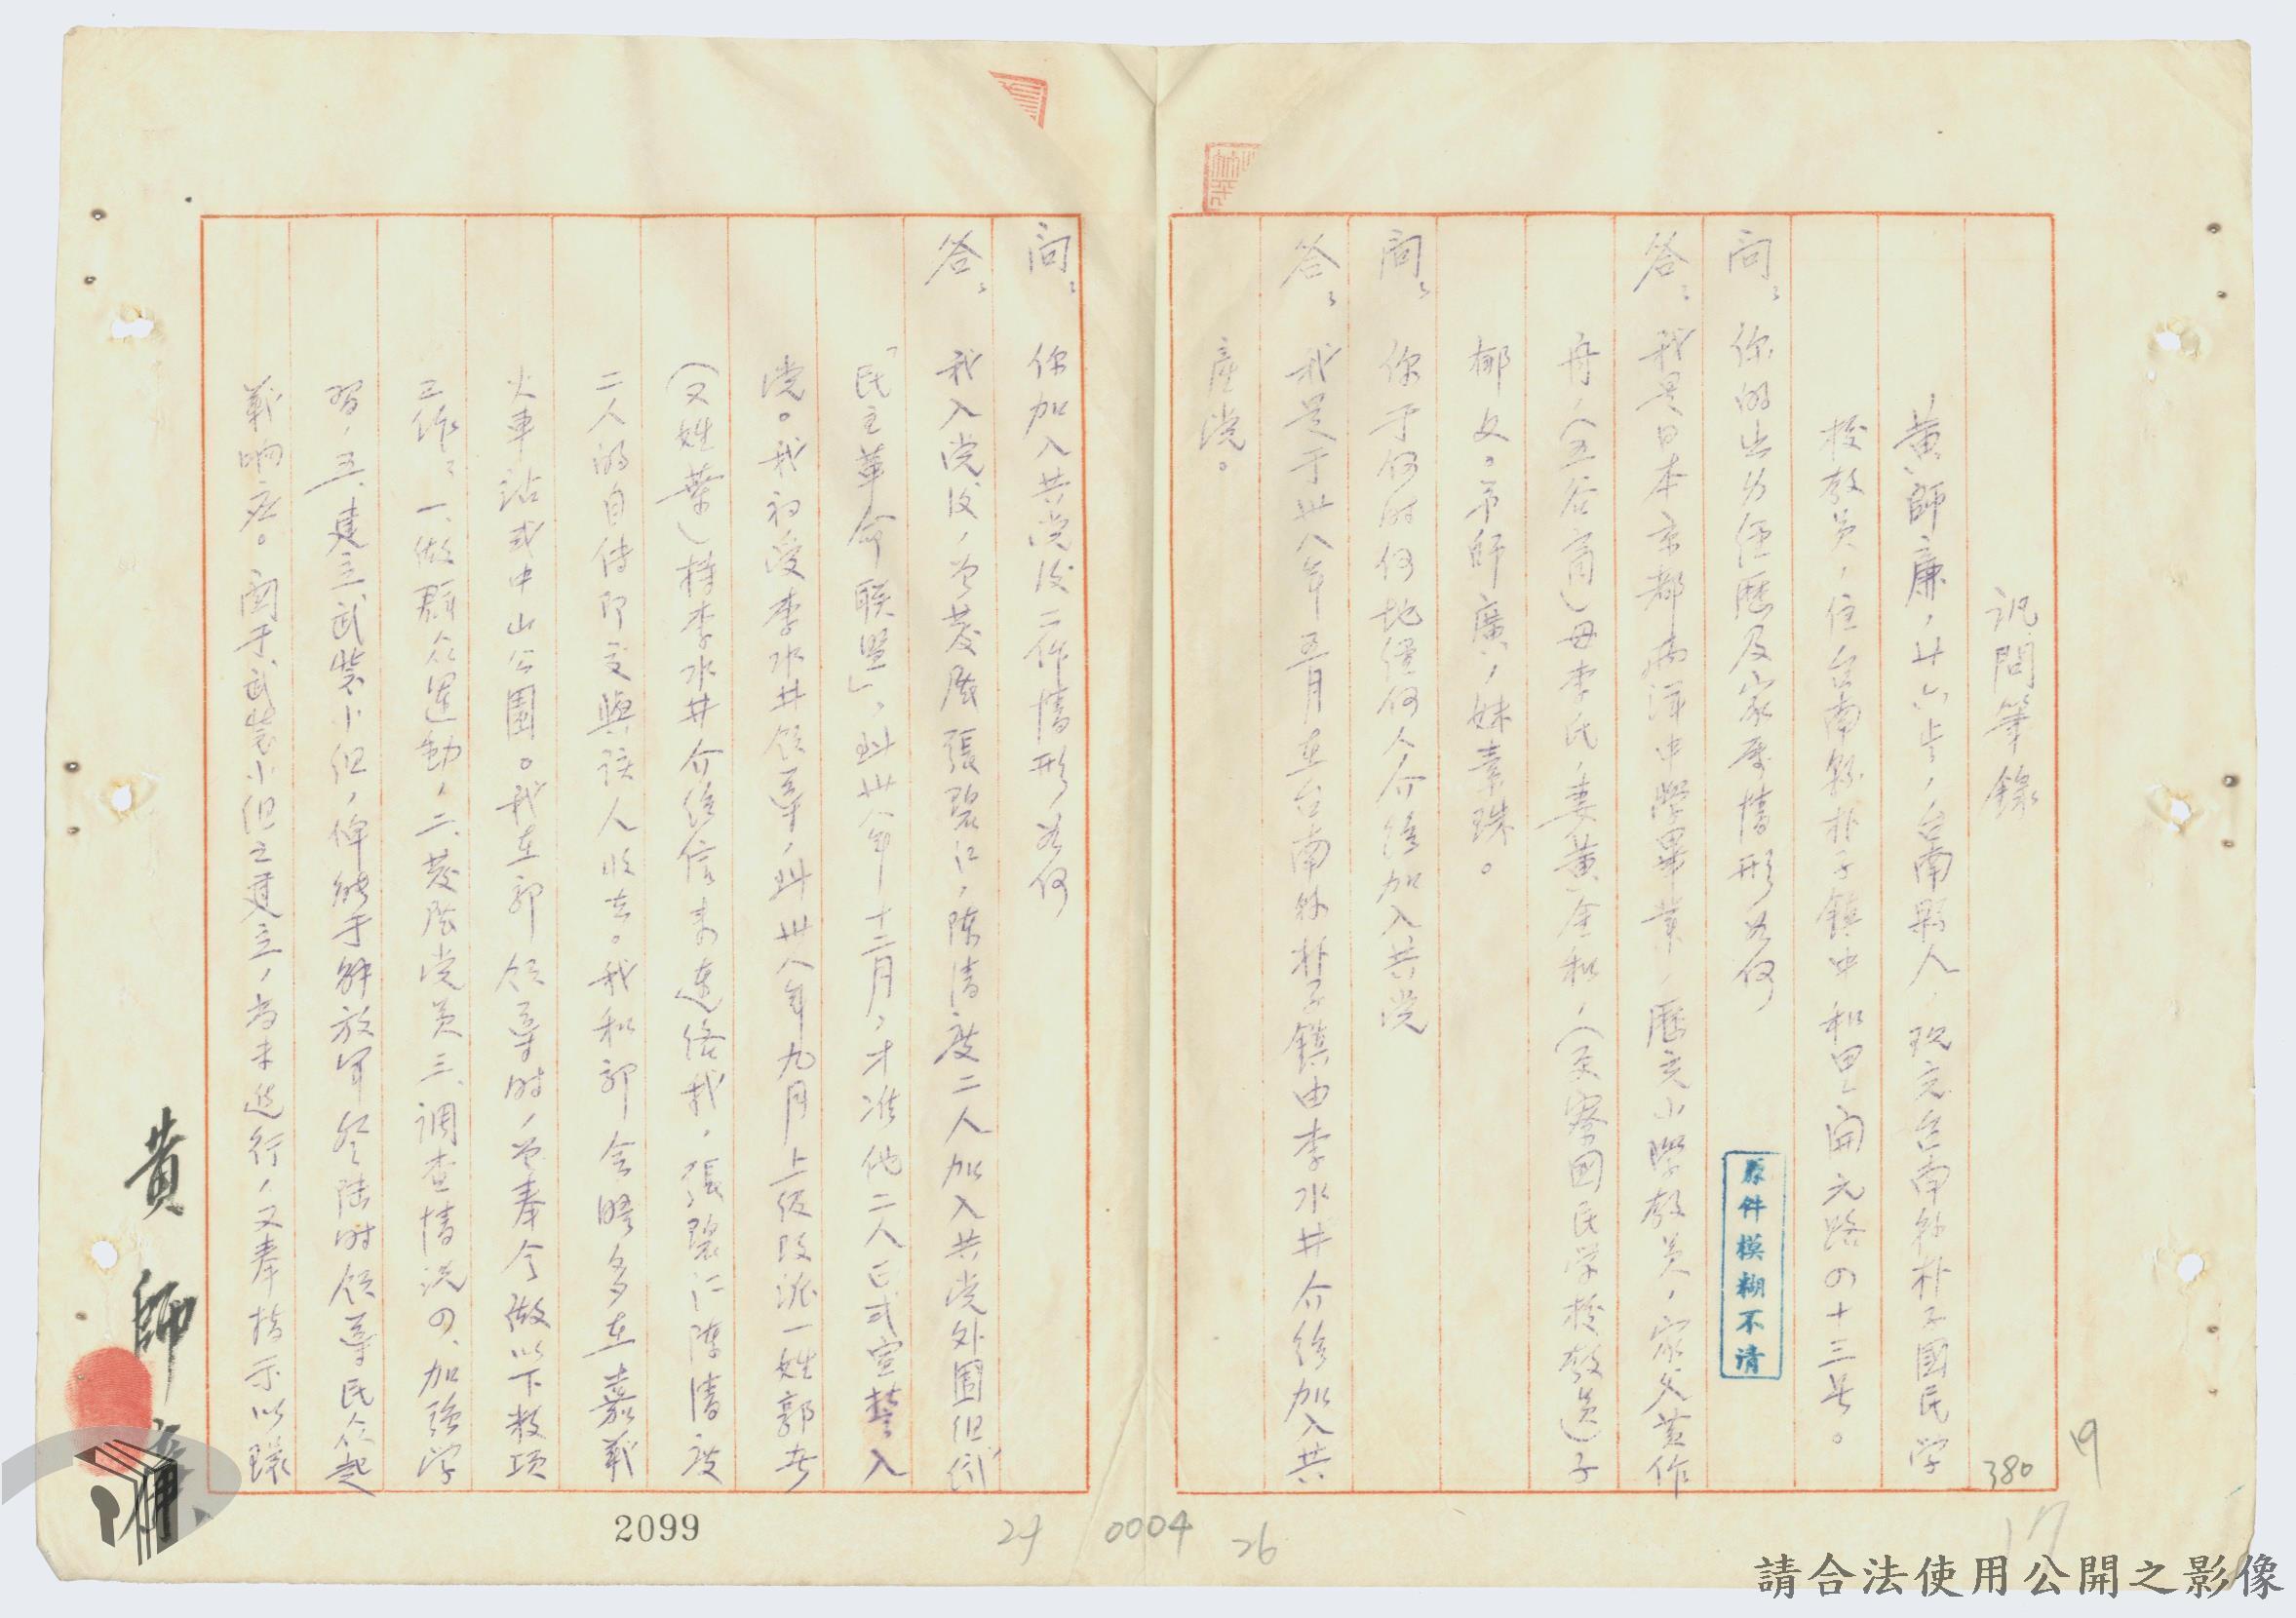 訊問筆錄
黃師廉，廿六岁，台南縣人，現充台南縣朴子國民学
校教员，住台南縣朴子鎮中和里開元路四十三号。
問：你的出身经歷及家属情形为何
答：我是日本京都両洋中學畢業，歷充小學教员，家父黄作
舟，（五谷商）母李氏，妻黄金和，（貢寮国民学校教员）子
郁文。弟師廣，妹素珠。
問：你于何时何地经何人介绍加入共党
答：我是于卅八年五月在台南縣朴子鎮由李水井介绍加入共
產党。
問：你加入共党後工作情形为何
答：我入党後，曾發展張碧江，陳清度二人加入共党外圍组織
「民主革命联盟」，到卅八年十二月，才准他二人正式宣誓入
党。我初受李水井领導，到卅八年九月上级改派一姓郭者
（又姓葉）持李水井介绍信来連络我，張碧江陳清度
二人的自傳即交與該人收去。我和郭会晤多在嘉義
火車站或中山公園。我在郭领導时，曾奉令做以下数項
工作：一、做群众運動，二、發展党员三、调查情况四、加強学
習，五、建立武裝小组，俾能于解放军登陸时领導民众起
義响应。関于武裝小组之建立，尚未進行，又奉指示以環
黃師廉
原件模糊不清
380
19
17
2099
24
0004
26
請合法使用公開之影像